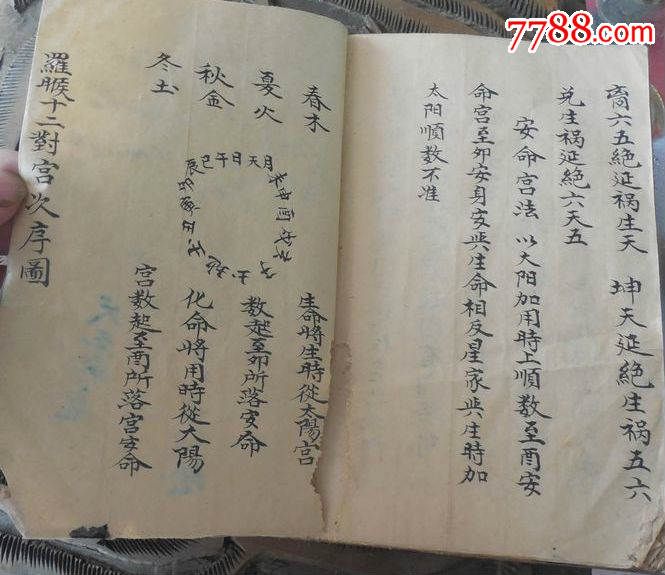 7788.com
裔六五絶延祸生天 坤天延絶生祸五六
兑生祸延絶六天五
安命宫法 以太阳加用時上順数至酉安
命宫至卯安身安与生命相反星家与生時加
太阳順数不准
春木
夏火
秋金
冬土
生命將生時從太陽宫
数起至卯所落安命
化命將用時從太陽
宫数起至酉所落宫安命
羅睺十二對宫次序圖